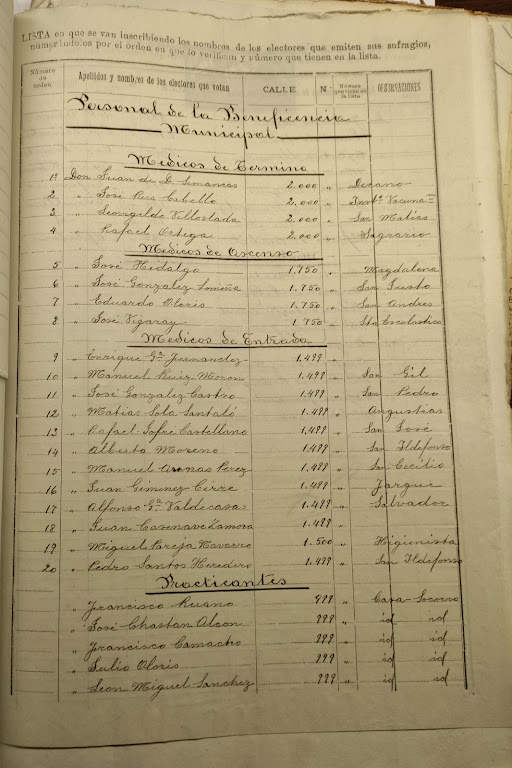 LISTA en que se van inscribiendo los nombres de los electores que emiten sus sufragios,
numerándolos por el orden en que lo verifican y número que tienen en la lista.
Número de orden. Apellidos y nombres de los electores que votan CALLE N.º Número que tienen en la lista OBSERVACIONES
Personal de la Beneficencia
Municipal
Medicos de Termino
1º Don Juan de D. Simancas 2.000 " Decano
2 " José Rus Cabello 2.000 " Instº Vacunaon
3 " Leovigildo Villoslada 2.000 " San Matias
4 " Rafael Ortega 2.000 " Sagrario
Medicos de Ascenso
5 " José Hidalgo 1.750 " Magdalena
6 " José Gonzalez 1.750 " San Justo
7 " Eduardo Oloris 1.750 " San Andres
8 " José Vigaray 1.750 " Sta Escolastica
Medicos de Entrada
9 " Enrique Gª Fernandez 1.499 "
10 " Manuel Ruiz Moron 1.499 " San Gil
11 " José Gonzalez Castro 1.499 " San Pedro
12 " Matias Sola Santaló 1.499 " Angustias
13 " Rafael Jofré Castellano 1.499 " San José
14 " Alberto Moreno 1.499 " San Ildefonso
15 " Manuel Arenas Perez 1.499 " San Cecilio
16 " Juan Gimenez Cirre 1.499 " Jargui
17 " Alfonso Gª Valdecasas 1.499 " Salvador
18 " Juan Casenave Zamora 1.499 "
19 " Miguel Pareja Navarro 1.500 " Higienista
20 " Pedro Santos Heredero 1.499 " San Ildefonso
Practicantes
" Francisco Ruano 999 " Casa-Socorro
" José Chastan Alcon 999 " id id
" Francisco Camacho 999 " id id
" Julio Oloris 999 " id id
" Leon Miguel Sanchez 999 " id id